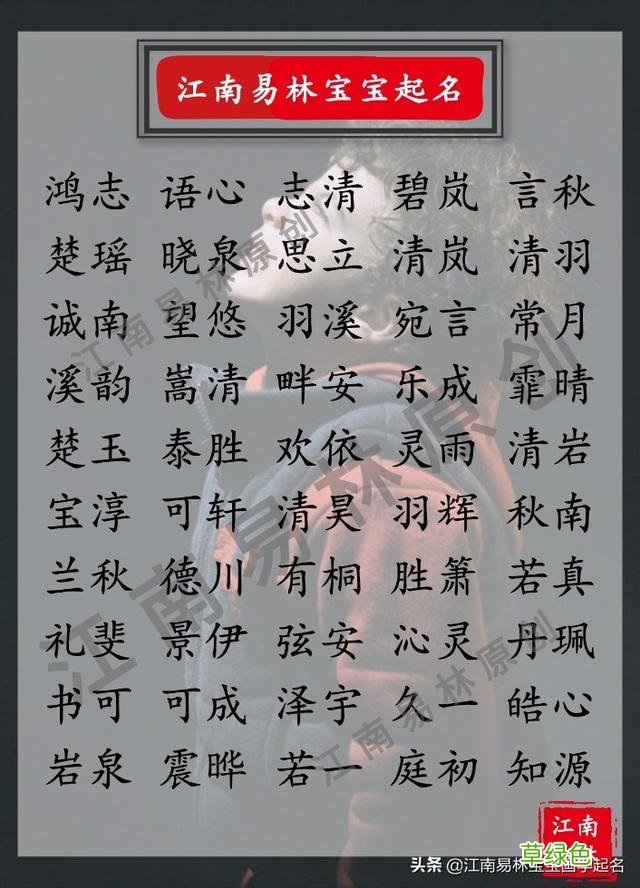 江南易林宝宝起名
鸿志 语心 志清 碧岚 言秋
楚瑶 晓泉 思立 清岚 清羽
诚南 望悠 羽溪 宛言 常月
溪韵 嵩清 畔安 乐成 霏晴
楚玉 泰胜 欢依 灵雨 清岩
宝淳 可轩 清昊 羽辉 秋南
兰秋 德川 有桐 胜箫 若真
礼斐 景伊 弦安 沁灵 丹珮
书可 可成 泽宇 久一 皓心
岩泉 震晔 若一 庭初 知源
江南易林原创
江南易林原创
江南易林原创
江南
草绿色
头条 @江南易林宝宝国学起名